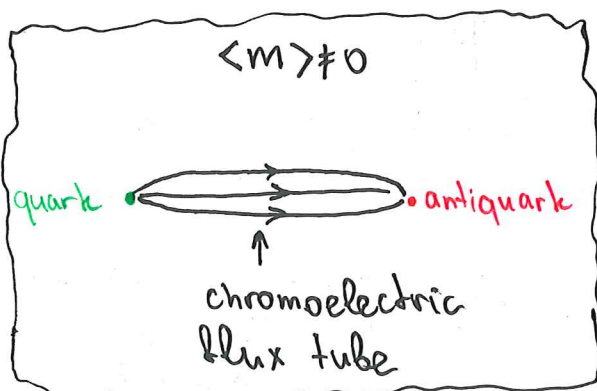 <m>≠0
quark
antiquark
chromoelectric
flux tube